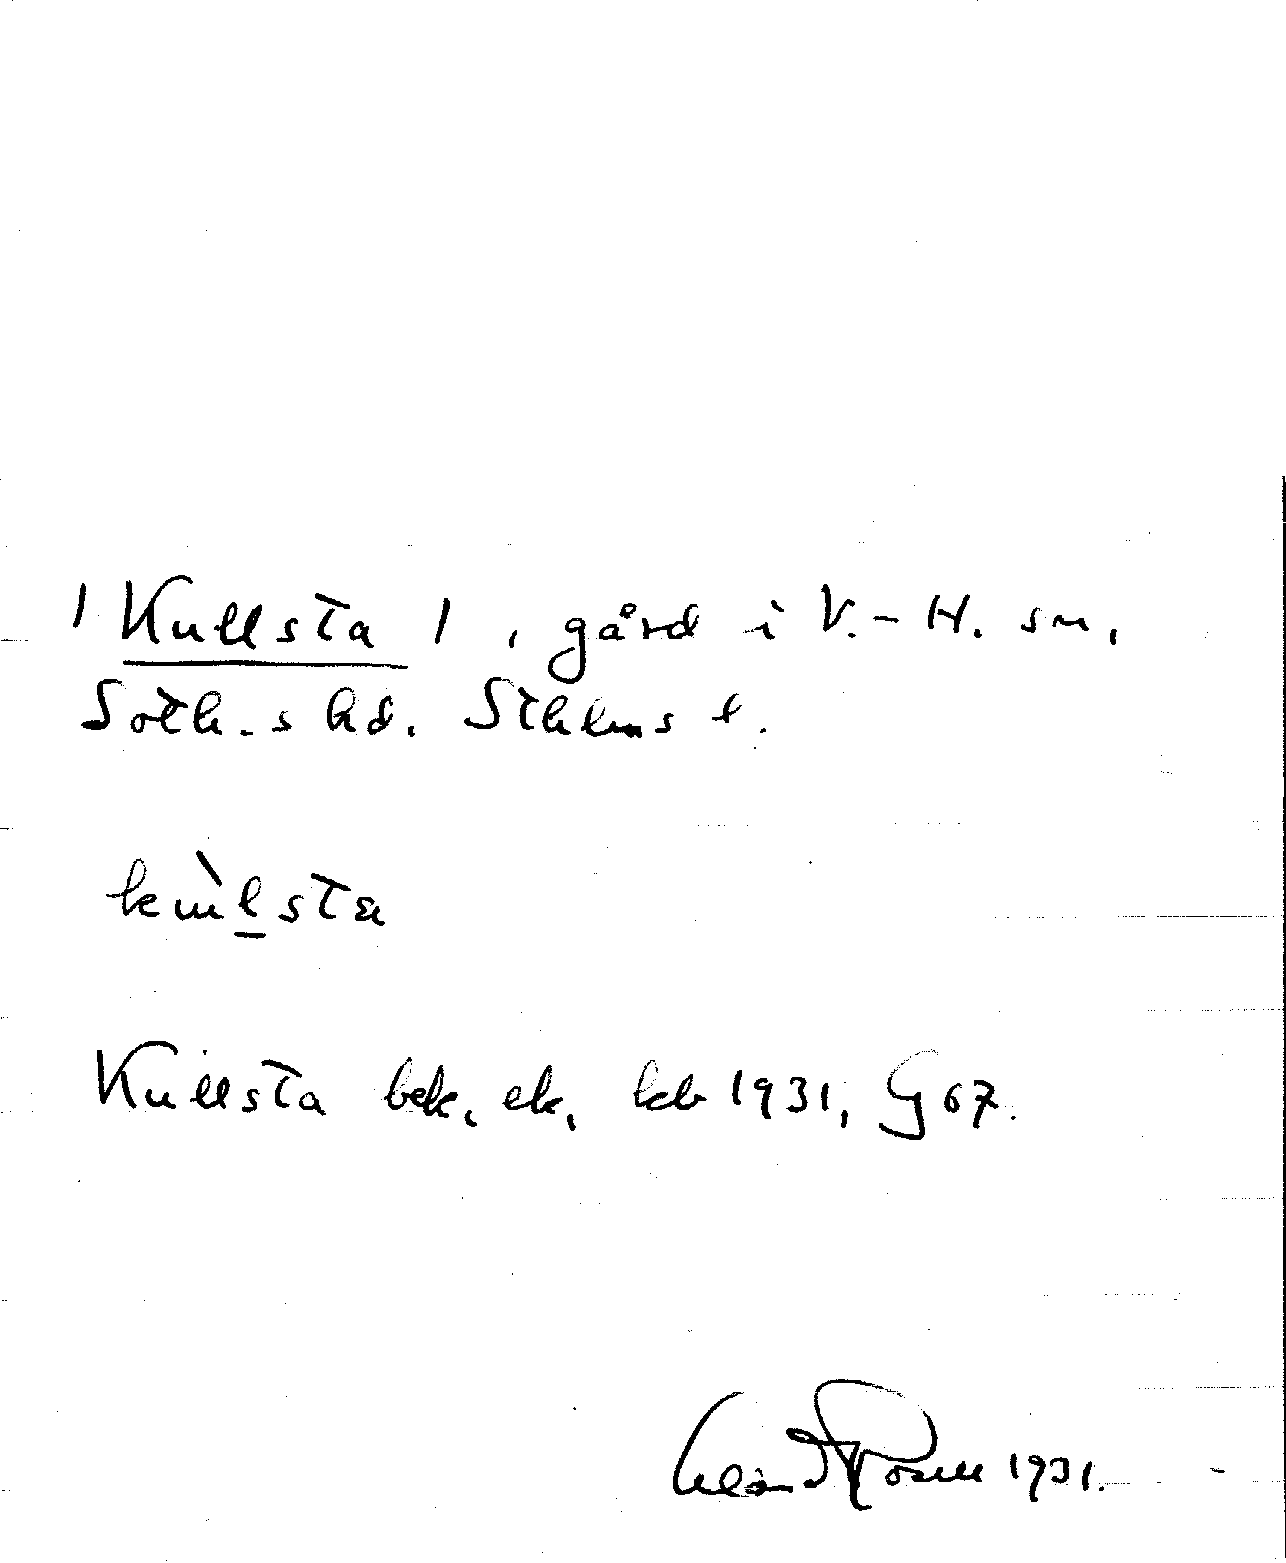 / Kullsta /, gård i V.-H. sn,
Soth.s hd. Sthlms l.
kùlsta
Kullsta bek. ek. kb 1931, G 67.
Rosell 1931.